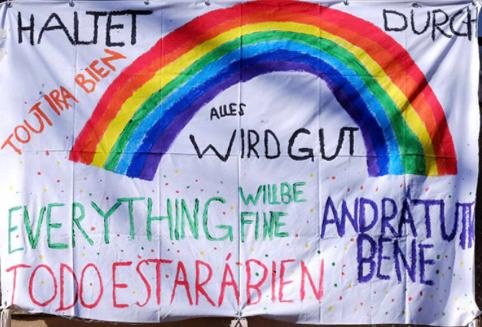 HALTET DURCH
TOUT IRA BIEN
ALLES
WIRD GUT
EVERYTHING WILL BE FINE
ANDRÀ TUTTO
BENE
TODO ESTARÁ BIEN